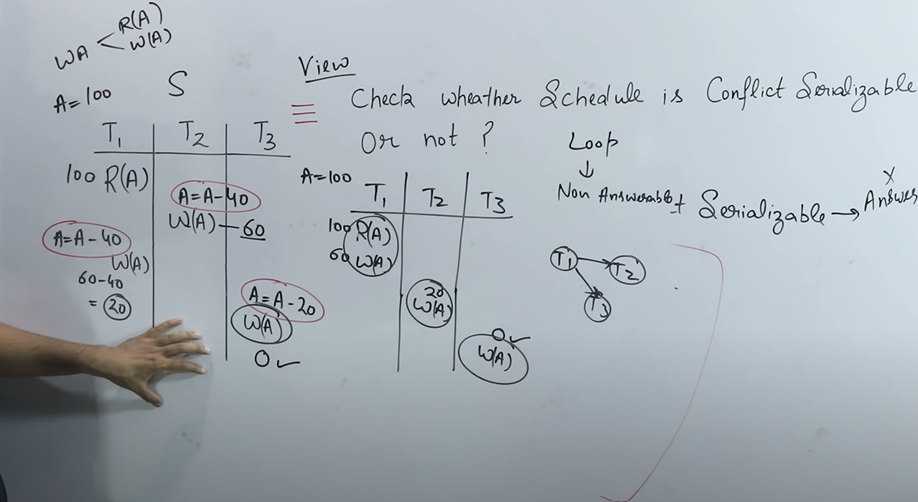 WA R(A)
W(A)
A=100 S
T1 T2 T3
100 R(A)
A=A-40
W(A) — 60
A=A-40
W(A)
60-40
= 20
A=A-20
W(A)
0 ✓
View
≡ Check wheather Schedule is Conflict Serializable
Or not ?
A=100
T1 T2 T3
100 R(A)
60 W(A)
20
W(A)
0 ✓
W(A)
Loop
↓
Non Answerable
Serializable → Answer
X
T1 T2
T3